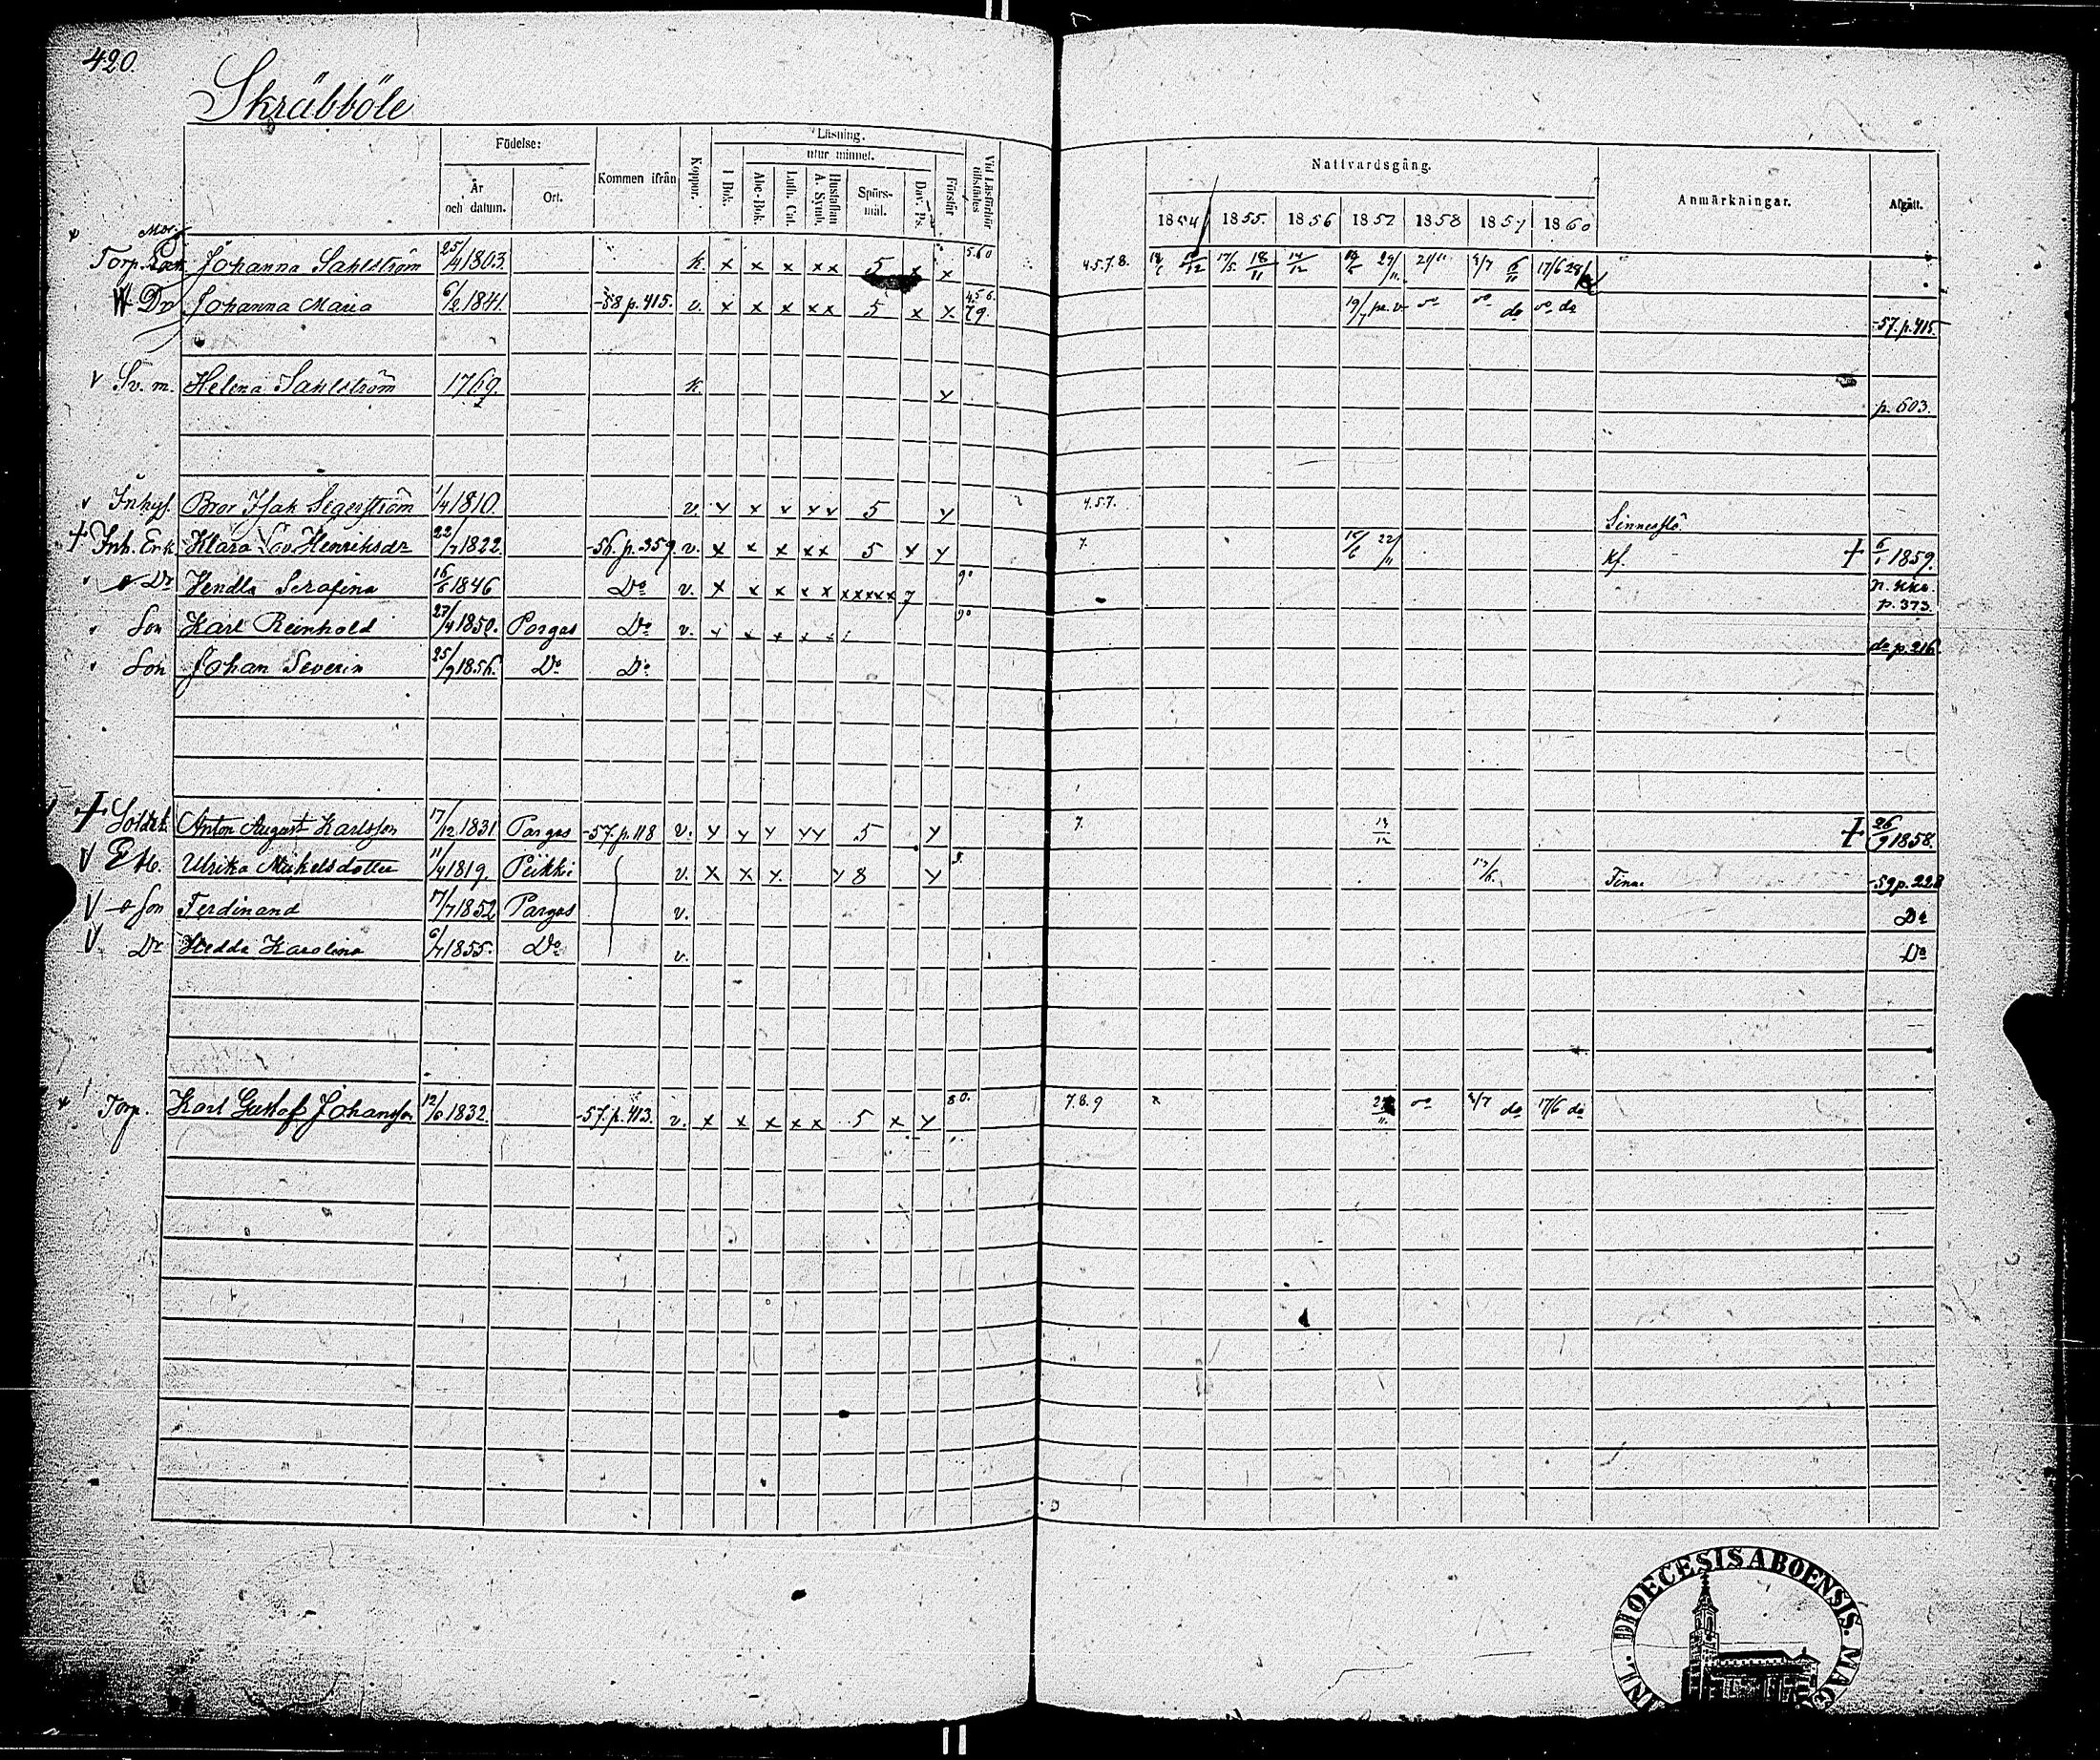 420.
Skräbböle
Födelse: Kommen ifrån Koppor. Läsning. Vid Läsförhör tillstädes Nattvardsgång. Anmärkningar. Afgått.
År och datum. Ort. I Bok. utur minnet. Förstår
Abc-Bok. Luth. Cat. Hustaflan A. Symb. Spörsmål. Dav. Ps. 1854 1855 1856 1857 1858 1859 1860
Mor
Torp. Johanna Sahlström 25/4 1803. k. x x x x x 5 x x 5.60 4.5.7.8. 17/5 18/11 14/12 24/11 21/11 6/11 17/6
Dr Johanna Maria 6/2 1841. -58 p. 415. v. x x x x x 5 x x 4.5.6. 7.9. 19/7 do do -57. p. 415
v Sv. m. Helena Sahlström 1769. k. x p. 603.
v Inhys. Bror Isak Segerström 1/4 1810. v. x x x x x 5 x 4.5.7. Sinnesslö
+ Inh. Enk. Klara Lov. Henriksdr 22/7 1822. -56. p. 359. v. x x x x x 5 x x 7. 15/6 22/11 kf. + 6/1 1859.
Dr Hendla Serafina 1846 Do v. x x x x x xxxxx 7 90 p. 373.
Son Karl Reinhold 27/4 1850. Pargas Do v. 90 do p. 216
Son Johan Severin 25/9 1856. Do Do
+ Soldat Anton August Karlsson 17/12 1831 Pargas -57. p. 118 v. x x x x x 5 x 7. 12 + 26/9 1858.
v Enk. Ulrika Mickelsdotter 11/4 1819. Peikki v. x x x x 8 x 8. Finne -59 p. 228
v Son Ferdinand 17/7 1852 Pargas v. Do
v Dr Hedda Karolina 6/7 1855. Do v. Do
Torp. Karl Gustaf Johansson 1832. -57. p. 413. v. x x x x x 5 x x 80. 7.8.9 x 11. do 17/6 do
DIOECESIS ABOENSIS.